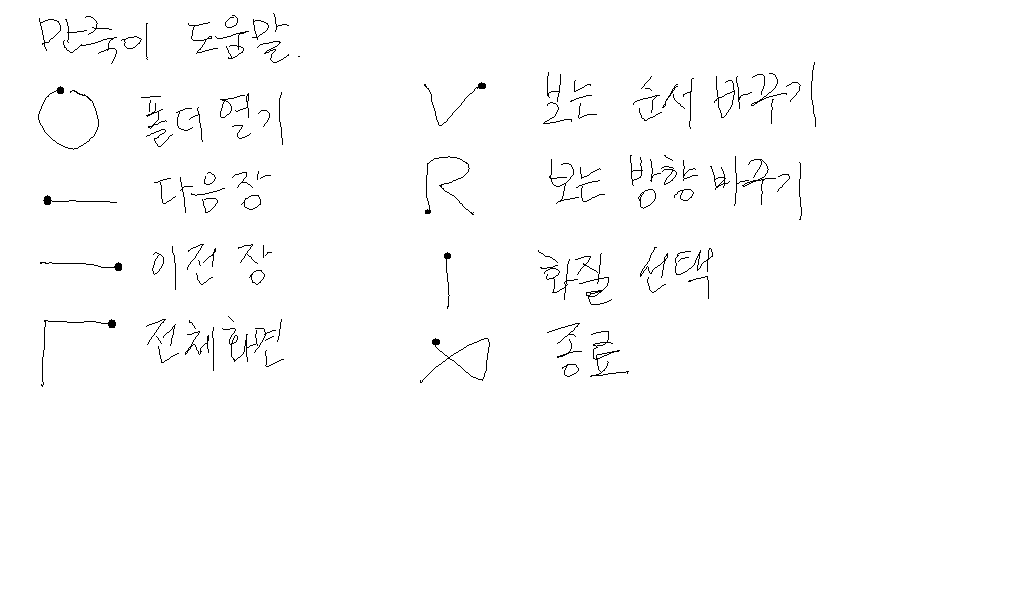 만죽이 도움말.
폴더 열기
다음장
이전 장
전체화면
보는 순서 바꾸기
R 보는 방향 바꾸기
화질 선택
종료